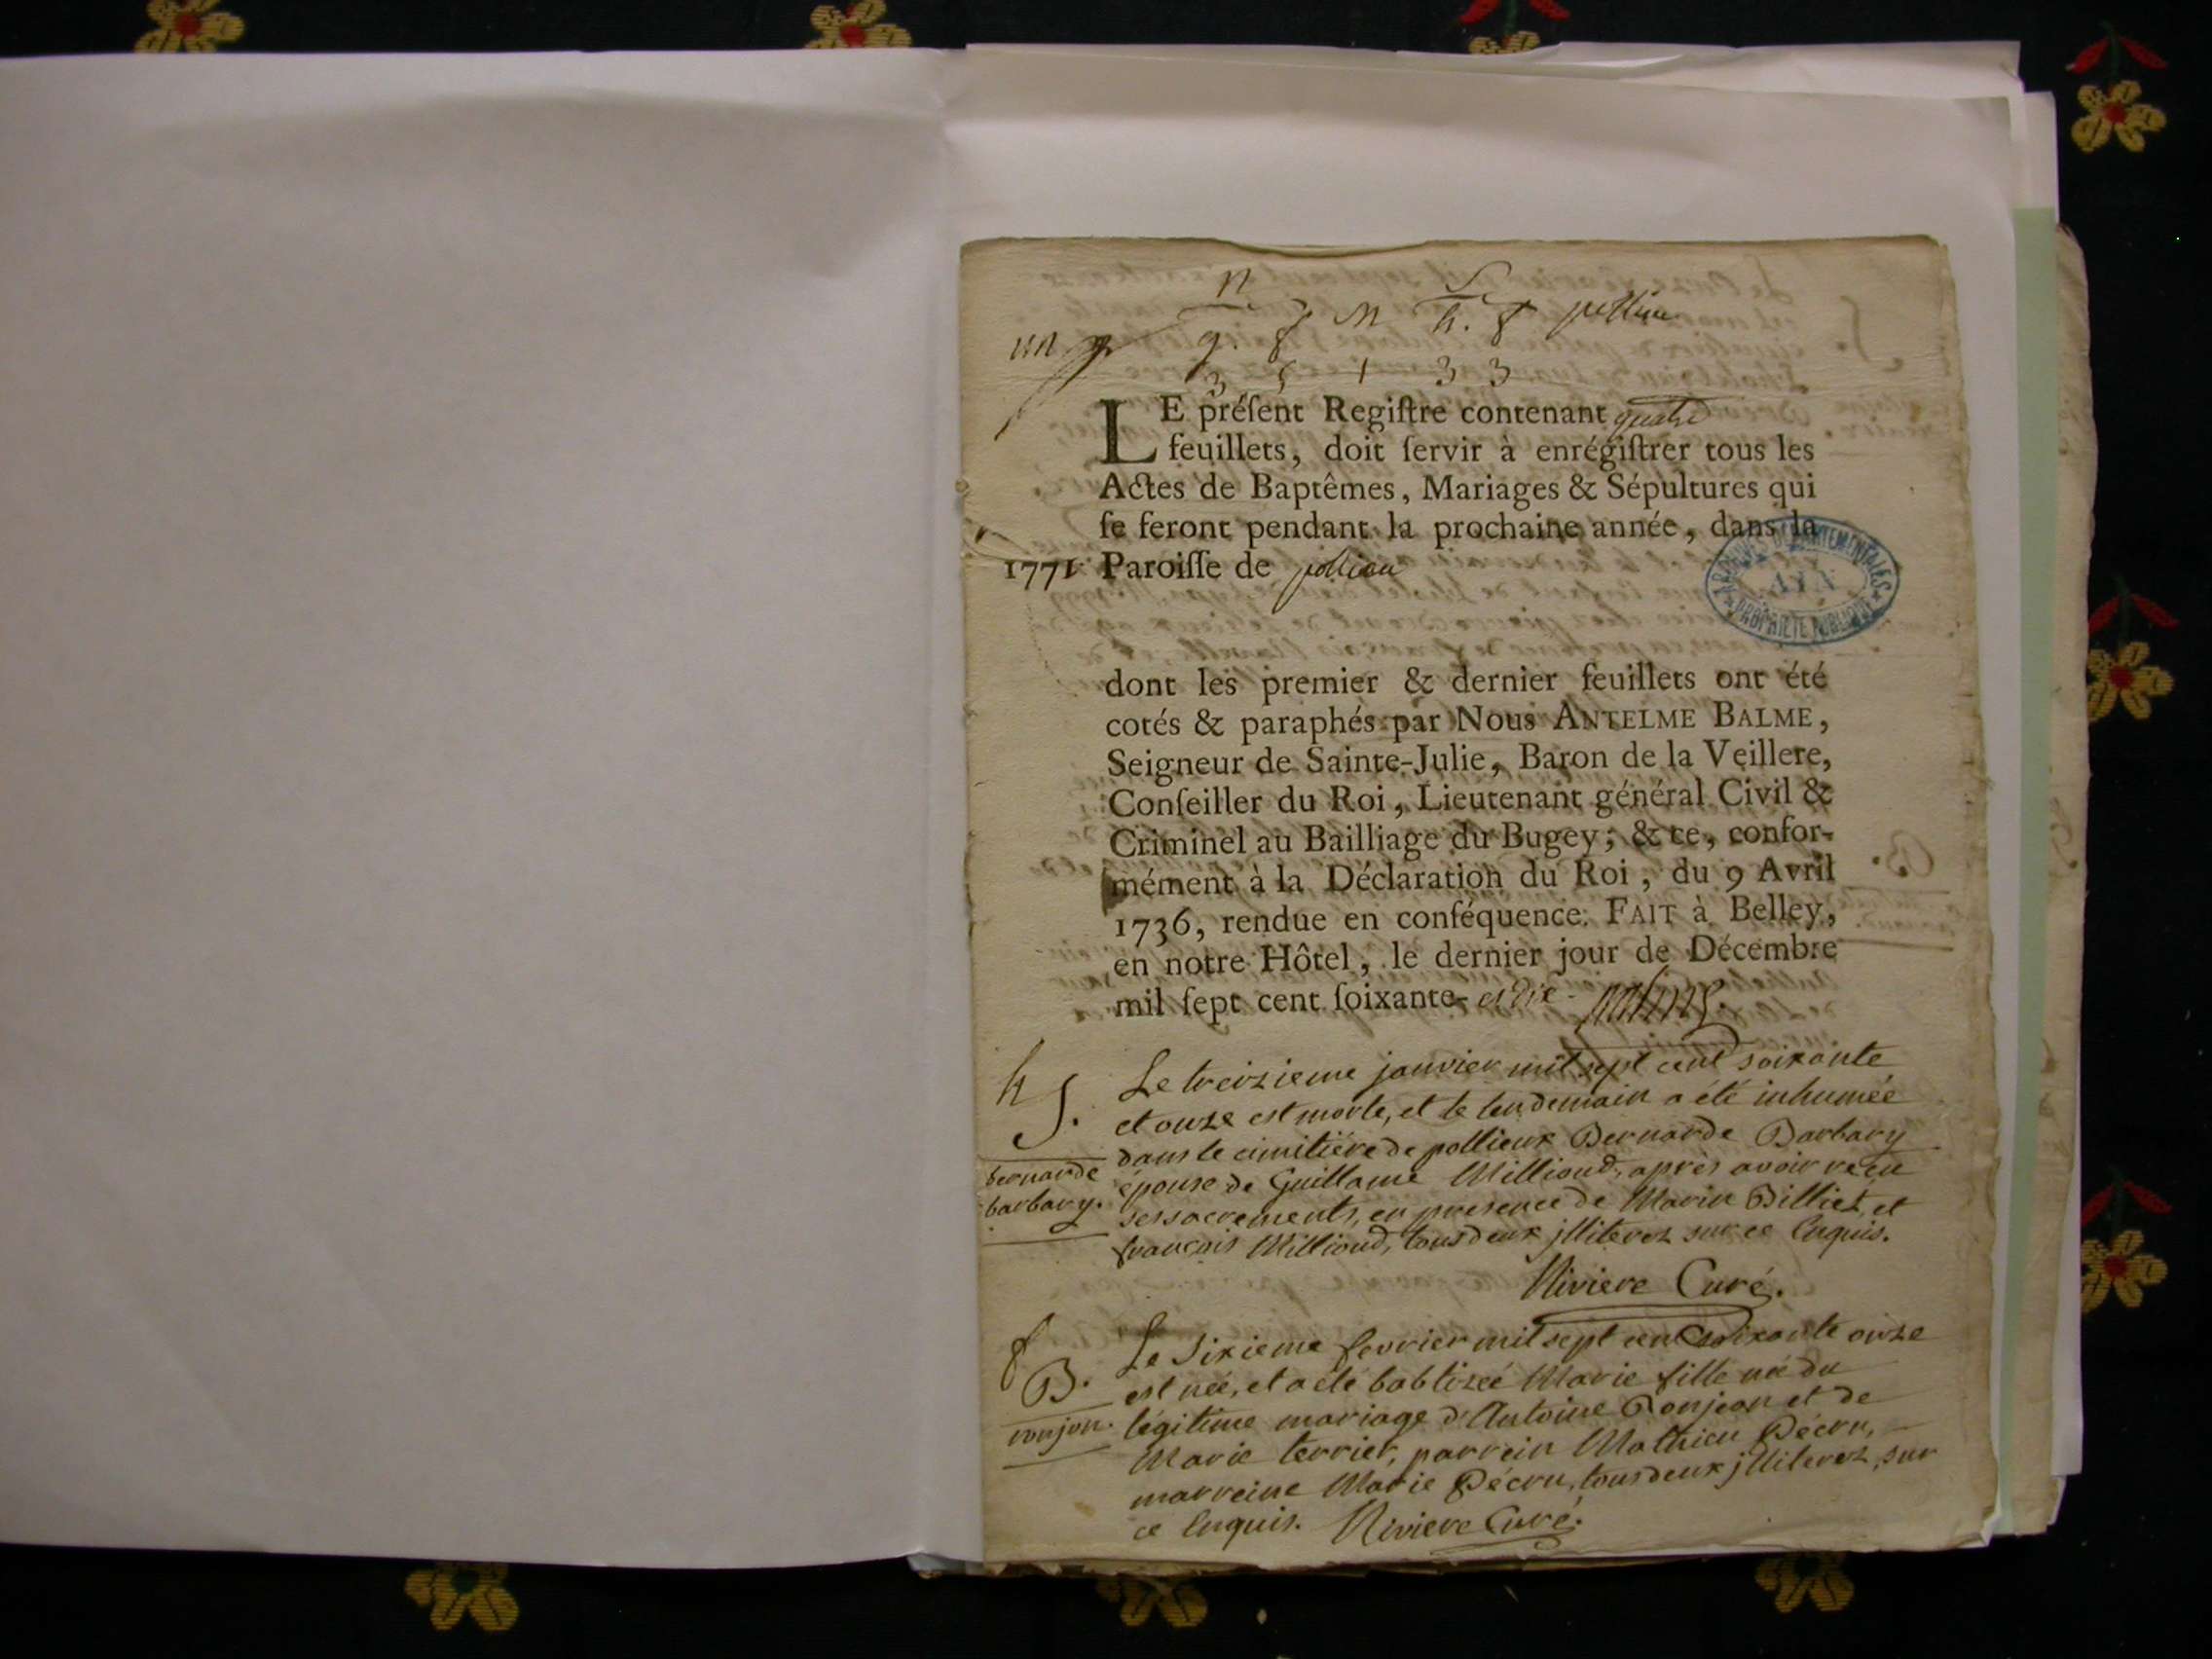 n S
un g. f m h. f pollieu
3 5 1 3 3
LE préſent Regiſtre contenant quatre
feuillets, doit ſervir à enrégiſtrer tous les
Actes de Baptêmes, Mariages & Sépultures qui
ſe feront pendant la prochaine année, dans la
1771 Paroiſſe de pollieu
ARCHIVES DÉPARTEMENTALES
AIN
PROPRIÉTÉ PUBLIQUE
dont les premier & dernier feuillets ont été
cotés & paraphés par Nous ANTELME BALME,
Seigneur de Sainte-Julie, Baron de la Veillere,
Conſeiller du Roi, Lieutenant général Civil &
Criminel au Bailliage du Bugey; & ce, confor-
mément à la Déclaration du Roi, du 9 Avril
1736, rendue en conſéquence. FAIT à Belley,
en notre Hôtel, le dernier jour de Décembre
mil ſept cent ſoixante- et dix
h S.
bernarde
barbary.
Le treizieme janvier mil sept cent soixante
et onze est morte, et le lendemain a été inhumée
dans le cimitiére de pollieux Bernarde Barbary
épouse de Guillaume Milliond, après avoir reçu
ses sacrements, en presence de Marin Billiet, et
françois Milliond, tous deux jlliterez sur ce Enquis.
Riviere Curé.
f B.
ronjon.
Le Sixieme fevrier mil sept cent soixante onze
est née, et a été babtizée Marie fille née du
légitime mariage d'Antoine Ronjeon et de
Marie terrier, parrein Mathieu Décru,
marreine Marie Décru, tous deux jlliterez, sur
ce Enquis. Riviere Curé.